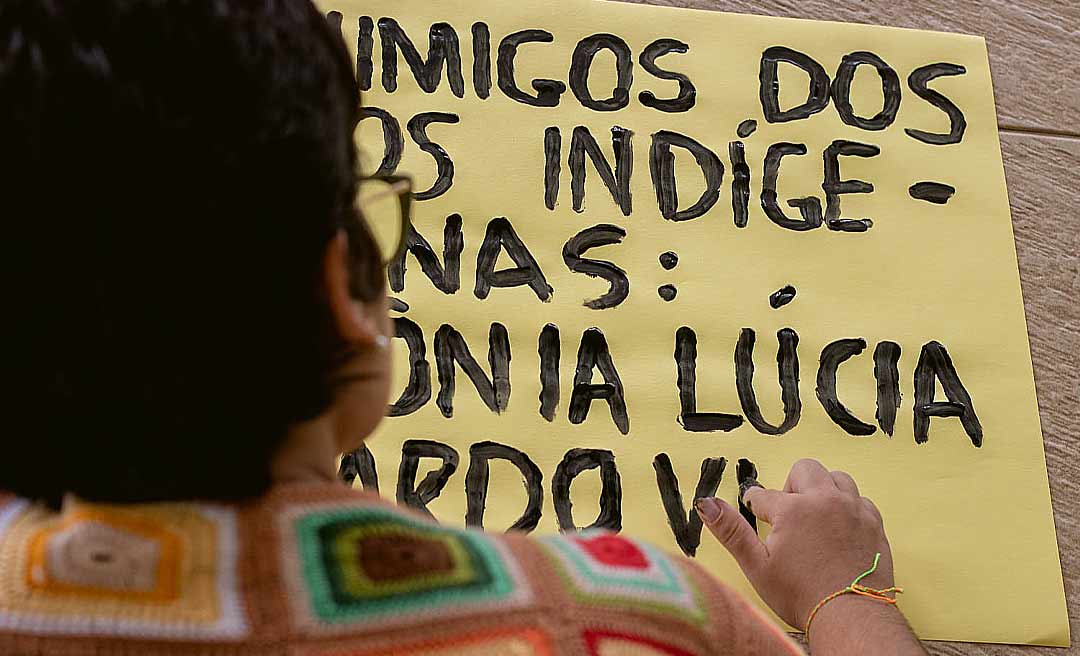 IMIGOS DOS
OS INDÍGE-
NAS:
ÔNIA LÚCIA
ARDO VI